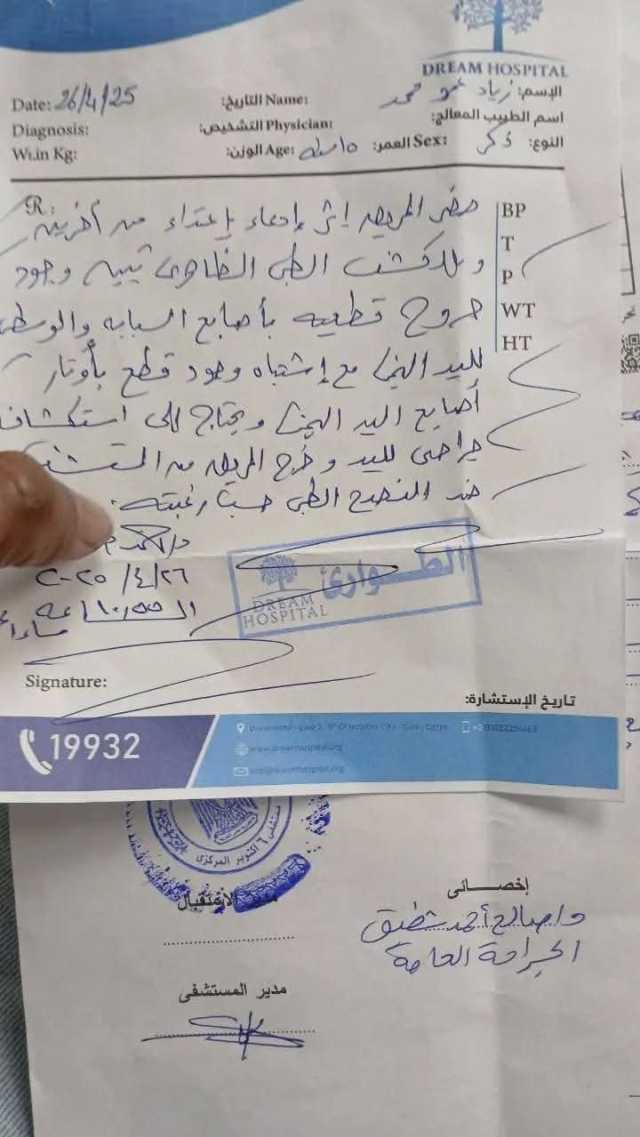 DREAM HOSPITAL
Date: 26/4/25 التاريخ: Name: الإسم: زياد عمرو محمد
Diagnosis: التشخيص: Physician: اسم الطبيب المعالج:
Wt.in Kg: الوزن: Age: العمر: ١٥ سنة Sex: النوع: ذكر
R:
BP
T
P
WT
HT
حضر المريض إثر إدعاء إعتداء من آخرين
وبالكشف الطبى الظاهرى تبين وجود
جروح قطعيه بأصابع السبابه والوسطى
لليد اليمنى مع إشتباه وجود قطع بأوتار
أصابع اليد اليمنى ويحتاج إلى استكشاف
جراحى لليد وخرج المريض من المستشفى
ضد النصح الطبى حسب رغبته.
٢٠٢٥/٤/٢٦
الساعة ١٠
مساءاً
الطوارئ
DREAM
HOSPITAL
Signature:
تاريخ الإستشارة:
19932
مستشفى ٦ أكتوبر المركزى
الاستقبال
إخصـــائى
أحمد
الجراحة العامة
مدير المستشفى